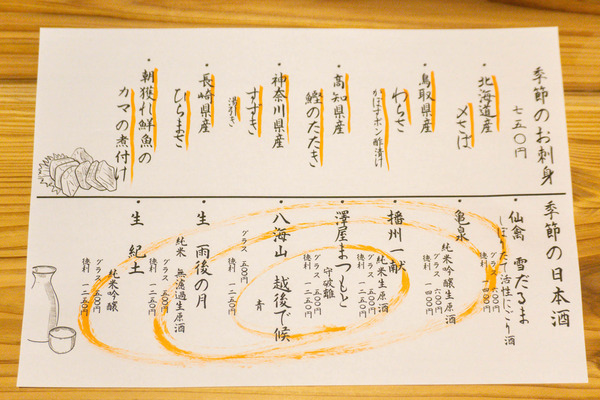 季節のお刺身
七五〇円
・北海道産
〆さば
・鳥取県産
わらさ
かぼすポン酢漬け
・高知県産
鰹のたたき
・神奈川県産
すずき
湯引き
・長崎県産
ひらまさ
・朝獲れ鮮魚の
カマの煮付け
季節の日本酒
・仙禽 雪だるま
しぼりたて活性にごり酒
グラス 六〇〇円
徳利 一四〇〇円
・亀泉
純米吟醸生原酒
グラス 六〇〇円
徳利 一四〇〇円
・播州一献
純米生原酒
グラス 五〇〇円
徳利 一二五〇円
・澤屋まつもと
守破離
グラス 五〇〇円
徳利 一二五〇円
・八海山 越後で候
青
グラス 五〇〇円
徳利 一二五〇円
・生 雨後の月
純米 無濾過生原酒
グラス 五〇〇円
徳利 一二五〇円
・生 紀土
純米吟醸
グラス 五〇〇円
徳利 一二五〇円